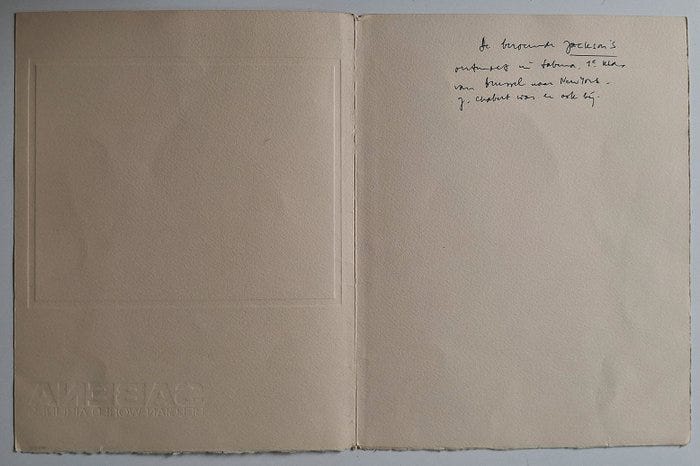 De beroemde Jackson's
ontmoet in Sabena. 1e klas
van Brussel naar New York.
J. Chabert was er ook bij.
SABENA
BELGIAN WORLD AIRLINES